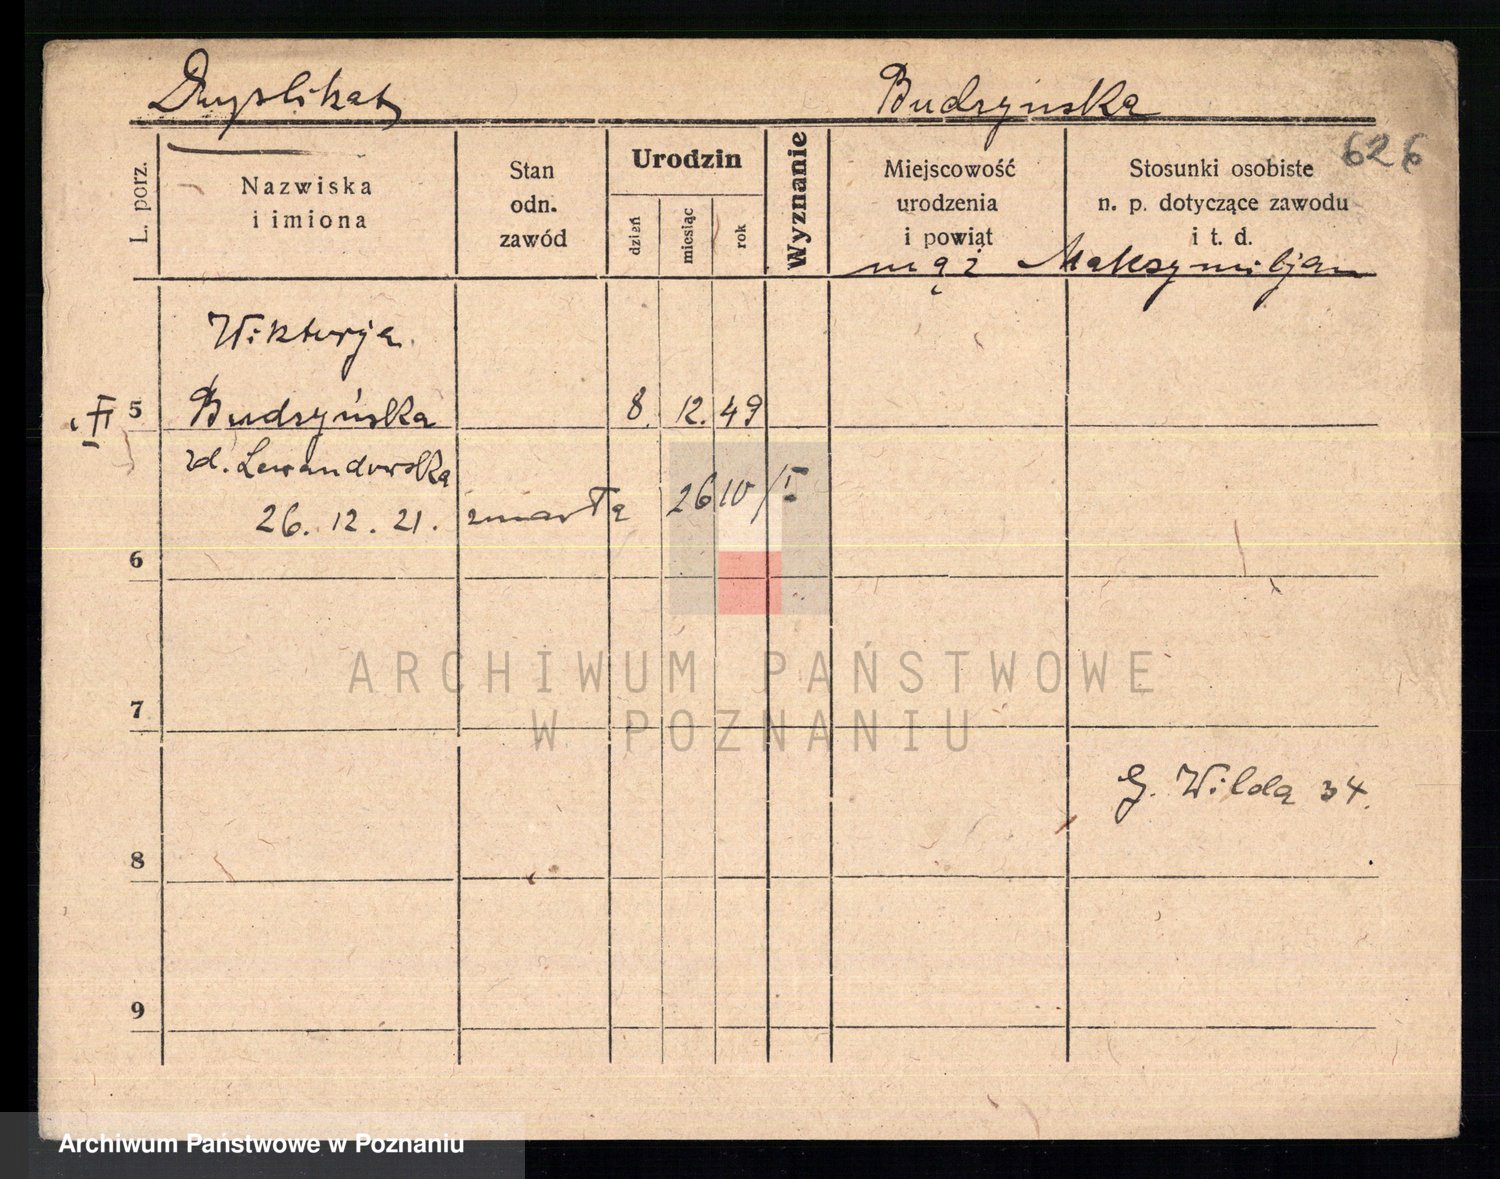 Duplikat
Budzyńska
626
L. porz.
Nazwiska
i imiona
Stan
odn.
zawód
Urodzin
dzień
miesiąc
rok
Wyznanie
Miejscowość
urodzenia
i powiąt
Stosunki osobiste
n. p. dotyczące zawodu
i t. d.
mąż Maksymiljan
Wiktorja.
5 Budzyńska 8. 12. 49
zd. Lewandowska
26. 12. 21. zmarła 26
6
ARCHIWUM PAŃSTWOWE
7
W POZNANIU
G. Wilda 34.
8
9
Archiwum Państwowe w Poznaniu